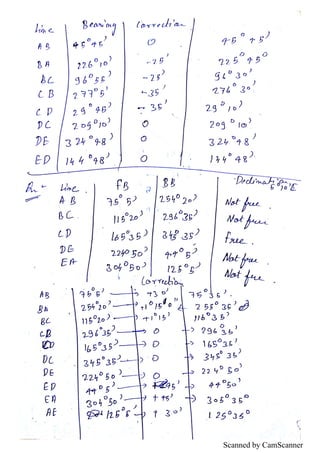 Line Bearing Correction
AB 45°45' 0 45°45'
BA 226°10' -25' 225°45'
BC 96°55' -25' 96°30'
CB 277°5' -35' 276°30'
CD 29°45' -35' 29°10'
DC 209°10' 0 209°10'
DE 324°48' 0 324°48'
ED 144°48' 0 144°48'
Line FB BB Declination 5°10'E
AB 75°5' 254°20' Not free
BC 115°20' 296°35' Not free
CD 165°35' 345°35' Free.
DE 224°50' 44°5' Not free
EA 304°50' 125°5' Not free
Correction
AB 75°5' → +30' 75°35'
BA 254°20' → +1°15' 255°35'
BC 115°20' → +1°15' 116°35'
CB 296°35' → 0 296°35'
CD 165°35' → 0 → 165°35'
DC 345°35' → 0 → 345°35'
DE 224°50' → 0 → 224°50'
ED 44°5' → +45' 44°50'
EA 304°50' → +45' 305°35'
AE 125°5' → +30' 125°35'
Scanned by CamScanner